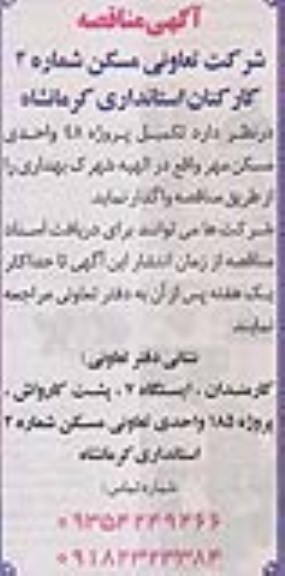 آگهی مناقصه
شرکت تعاونی مسکن شماره ۲
کارکنان استانداری کرمانشاه
درنظر دارد تکمیل پروژه ۹۸ واحدی
مسکن مهر واقع در الهیه شهرک بهداری را
از طریق مناقصه واگذار نماید
شرکت ها می توانند برای دریافت اسناد
مناقصه از زمان انتشار این آگهی تا حداکثر
یک هفته پس از آن به دفتر تعاونی مراجعه
نمایند
نشانی دفتر تعاونی:
کارمندان ، ایستگاه ۷ ، پشت کارواش ،
پروژه ۱۸۵ واحدی تعاونی مسکن شماره ۲
استانداری کرمانشاه
شماره تماس:
۰۹۳۵۴۲۴۹۲۶۶
۰۹۱۸۲۳۲۳۳۸۴